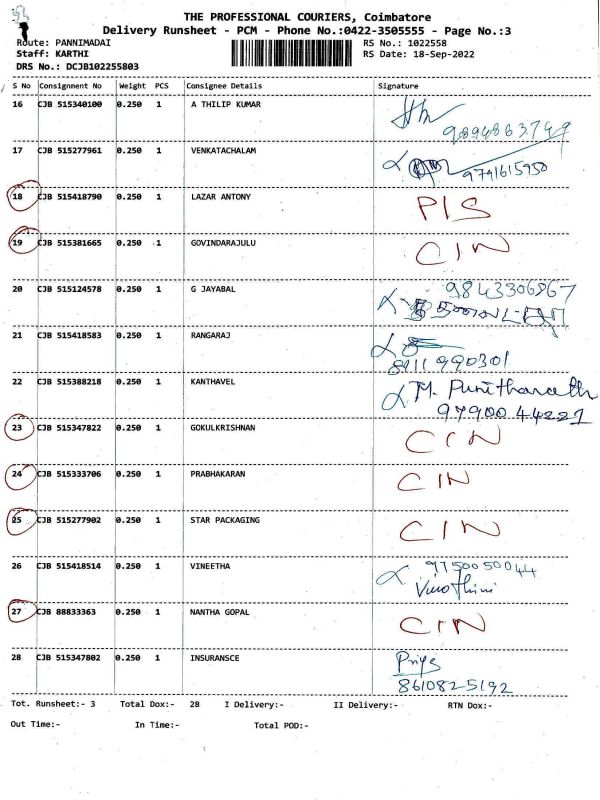 THE PROFESSIONAL COURIERS, Coimbatore
Delivery Runsheet - PCM - Phone No.:0422-3505555 - Page No.:3
Route: PANNIMADAI RS No.: 1022558
Staff: KARTHI RS Date: 18-Sep-2022
DRS No.: DCJB102255803
S No Consignment No Weight PCS Consignee Details Signature
16 CJB 515340100 0.250 1 A THILIP KUMAR
9894863749
17 CJB 515277961 0.250 1 VENKATACHALAM
9791615950
18 CJB 515418790 0.250 1 LAZAR ANTONY PIS
19 CJB 515381665 0.250 1 GOVINDARAJULU CIN
20 CJB 515124578 0.250 1 G JAYABAL 9843306867
21 CJB 515418583 0.250 1 RANGARAJ
8911990301
22 CJB 515388218 0.250 1 KANTHAVEL M.
97900 44221
23 CJB 515347822 0.250 1 GOKULKRISHNAN CIN
24 CJB 515333706 0.250 1 PRABHAKARAN CIN
25 CJB 515277902 0.250 1 STAR PACKAGING CIN
26 CJB 515418514 0.250 1 VINEETHA 9750050044
Vinothini
27 CJB 88833363 0.250 1 NANTHA GOPAL CIN
28 CJB 515347802 0.250 1 INSURANSCE Priya
8610825192
Tot. Runsheet:- 3 Total Dox:- 28 I Delivery:- II Delivery:- RTN Dox:-
Out Time:- In Time:- Total POD:-